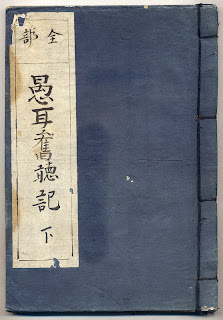 全部
愚耳舊聴記
下